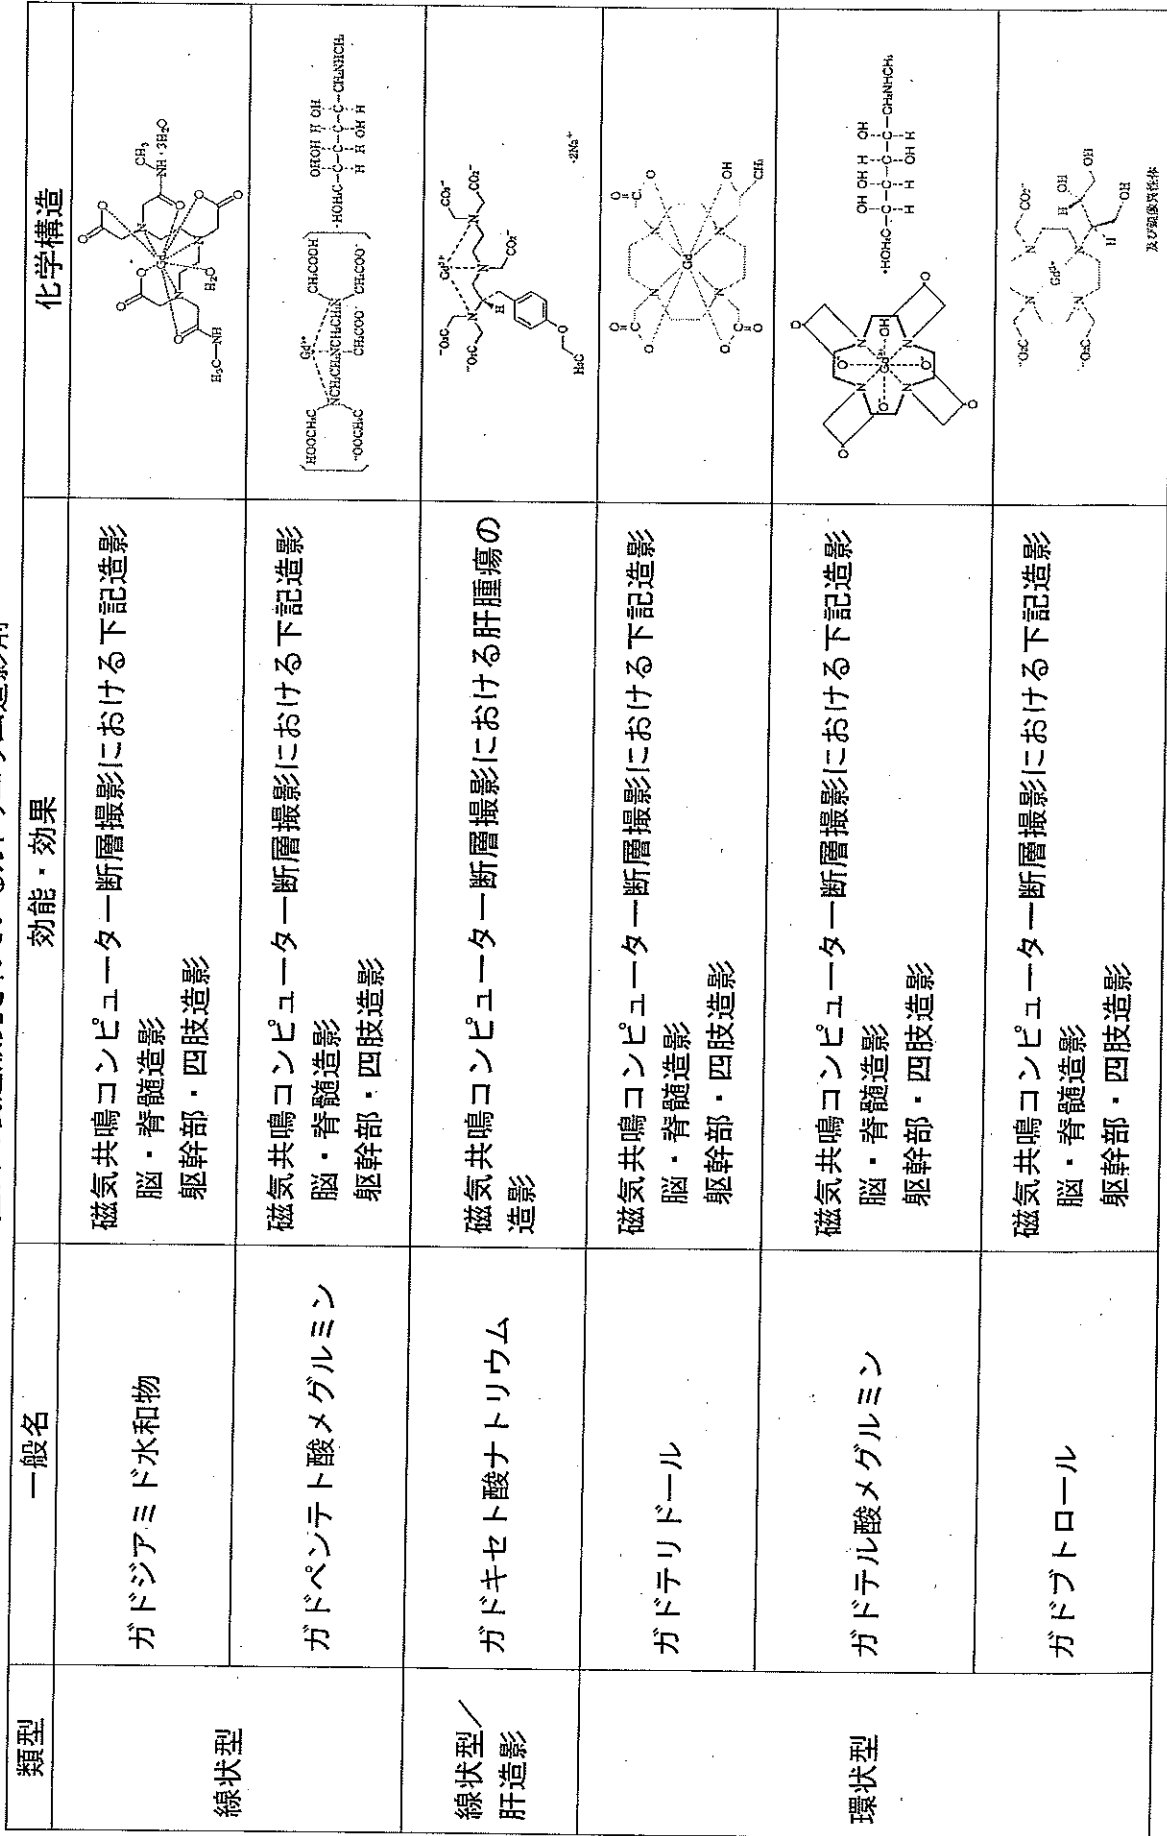 類型
一般名
効能・効果
化学構造
線状型
ガドジアミド水和物
磁気共鳴コンピューター断層撮影における下記造影
脳・脊髄造影
躯幹部・四肢造影
CH₃
NH・3H₂O
Gd
H₂O
H₃C—NH
ガドペンテト酸メグルミン
磁気共鳴コンピューター断層撮影における下記造影
脳・脊髄造影
躯幹部・四肢造影
Gd³⁺
HOOCH₂C
CH₂COOH
NCH₂CH₂NCH₂CH₂N
⁻OOCH₂C
CH₂COO⁻
CH₂COO⁻
OHOH H OH
・HOH₂C—C—C—C—C—CH₂NHCH₃
H H OH H
線状型／
肝造影
ガドキセト酸ナトリウム
磁気共鳴コンピューター断層撮影における肝腫瘍の
造影
Gd³⁺
⁻O₂C
CO₂⁻
⁻O₂C
CO₂⁻
CO₂⁻
H
H₃C
・2Na⁺
環状型
ガドテリドール
磁気共鳴コンピューター断層撮影における下記造影
脳・脊髄造影
躯幹部・四肢造影
Gd
OH
CH₃
ガドテル酸メグルミン
磁気共鳴コンピューター断層撮影における下記造影
脳・脊髄造影
躯幹部・四肢造影
OH OH H OH
・HOH₂C—C—C—C—C—CH₂NHCH₃
H H OH H
ガドブトロール
磁気共鳴コンピューター断層撮影における下記造影
脳・脊髄造影
躯幹部・四肢造影
⁻O₂C
CO₂⁻
Gd³⁺
⁻O₂C
H
OH
OH
H
OH
及び鏡像異性体